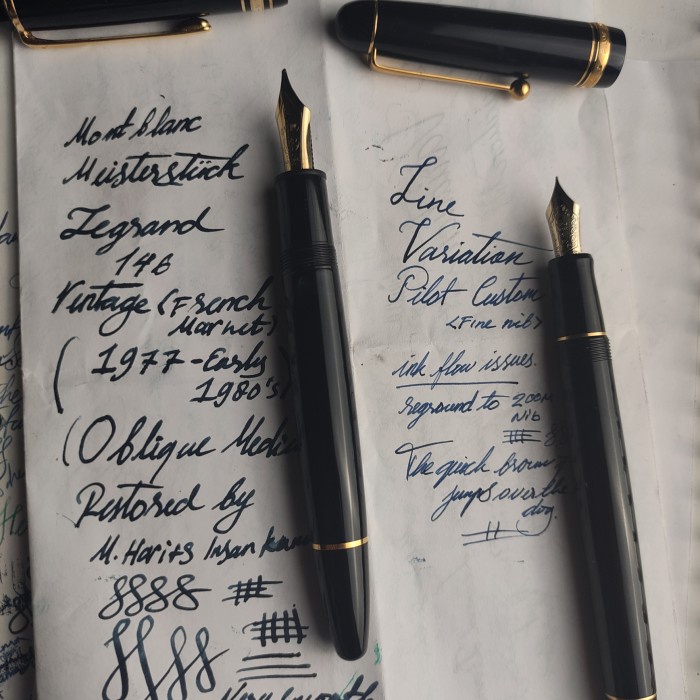 Montblanc
Meisterstück
Legrand
146
Vintage (French
Market)
(1977-Early
1980's)
(Oblique Medi
Restored by
M. Harits Insan
Line
Variation
Pilot Custom
<Fine nib>
ink flow issues.
reground to zoom
Nib
The quick brown
jumps over the
dog.